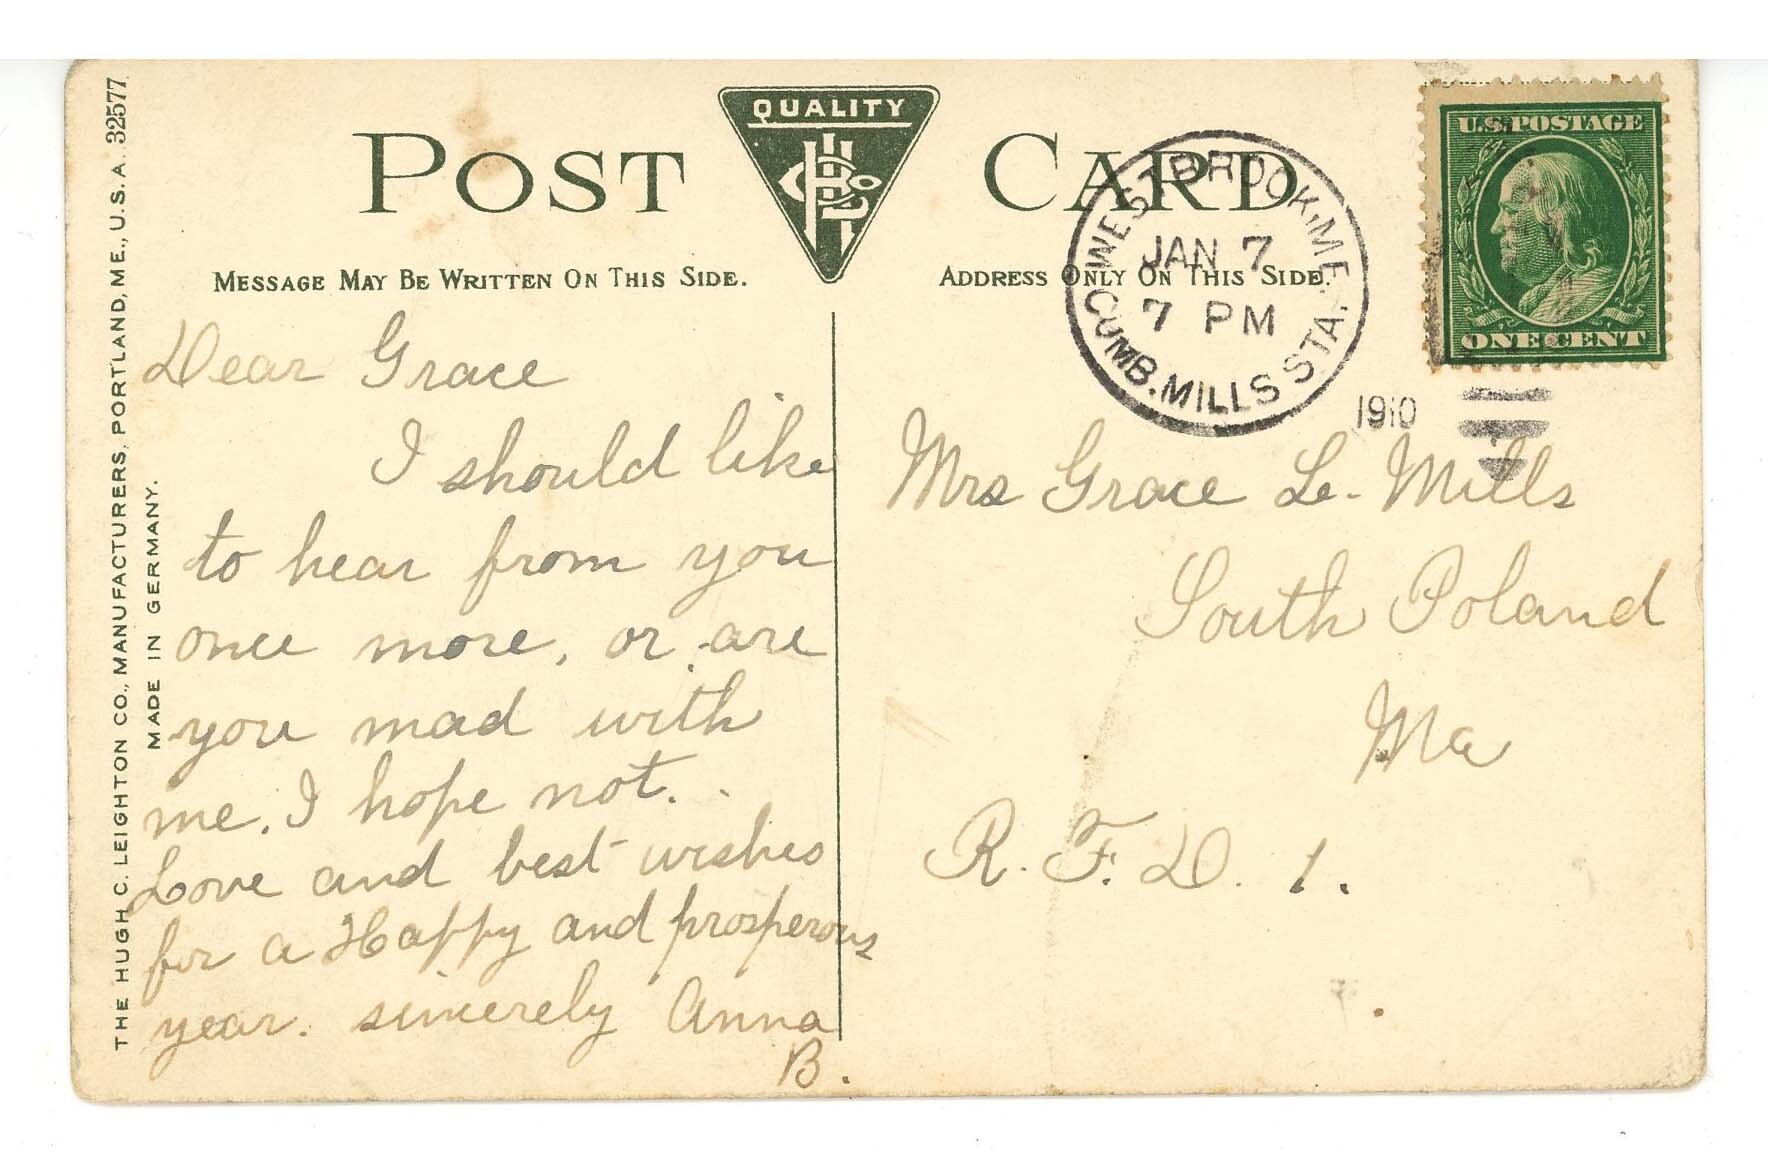 THE HUGH C. LEIGHTON CO., MANUFACTURERS, PORTLAND, ME., U.S.A. 32577
MADE IN GERMANY.
POST CARD
QUALITY
MESSAGE MAY BE WRITTEN ON THIS SIDE.
ADDRESS ONLY ON THIS SIDE.
WESTBROOK, ME.
JAN 7
7 PM
CUMB. MILLS STA.
1910
U.S. POSTAGE
ONE CENT
Dear Grace
I should like
to hear from you
once more, or are
you mad with
me. I hope not.
Love and best wishes
for a Happy and prosperous
year. sincerely Anna
B.
Mrs Grace L. Mills
South Poland
Me
R. F. D. 1.